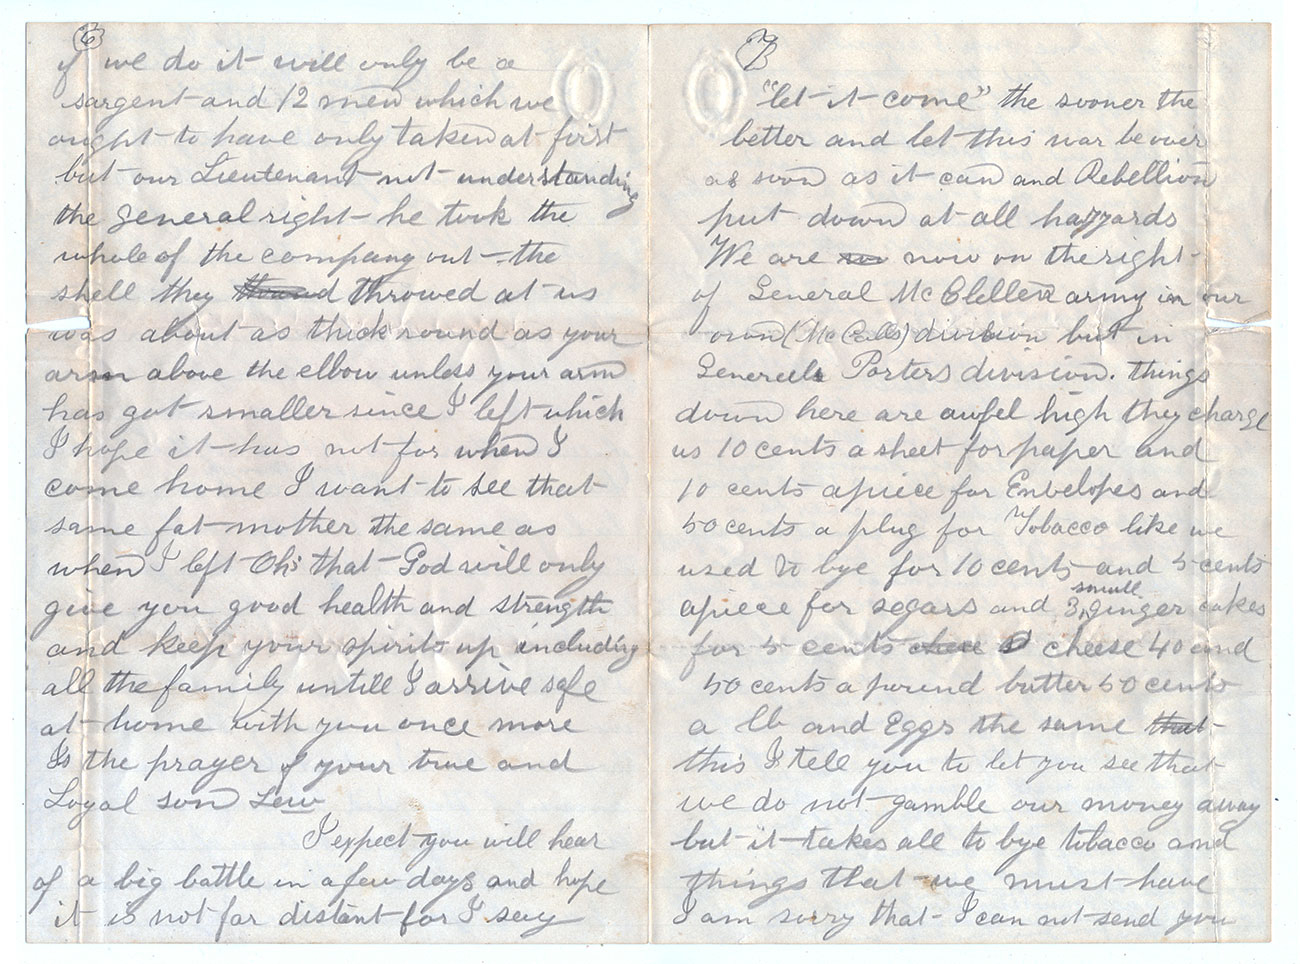 6
if we do it will only be a
sargent and 12 men which we
ought to have only taken at first
but our Lieutenant not understanding
the general right he took the
whole of the company out – the
shell they throwed at us
was about as thick round as your
arm above the elbow unless your arm
has got smaller since I left which
I hope it has not for when I
come home I want to see that
same fat mother the same as
when I left Oh! that God will only
give you good health and strength
and keep your spirits up including
all the family untill I arrive safe
at home with you once more
Is the prayer of your true and
Loyal son Lew
I expect you will hear
of a big battle in a few days and hope
it is not far distant for I say
7
"let it come" the sooner the
better and let this war be over
as soon as it can and Rebellion
put down at all hazzards
We are now on the right
of General McClellen army in our
own (McCalls) division but in
Generals Porters division. things
down here are awfel high they charge
us 10 cents a sheet for paper and
10 cents apiece for Envelopes and
50 cents a plug for Tobacco like we
used to bye for 10 cents and 5 cents
apiece for segars and 3 small ginger cakes
for 5 cents cheese 40 and
50 cents a pound butter 50 cents
a lb and Eggs the same that
this I tell you to let you see that
we do not gamble our money away
but it takes all to bye tobacco and
things that we must have
I am sorry that I can not send you